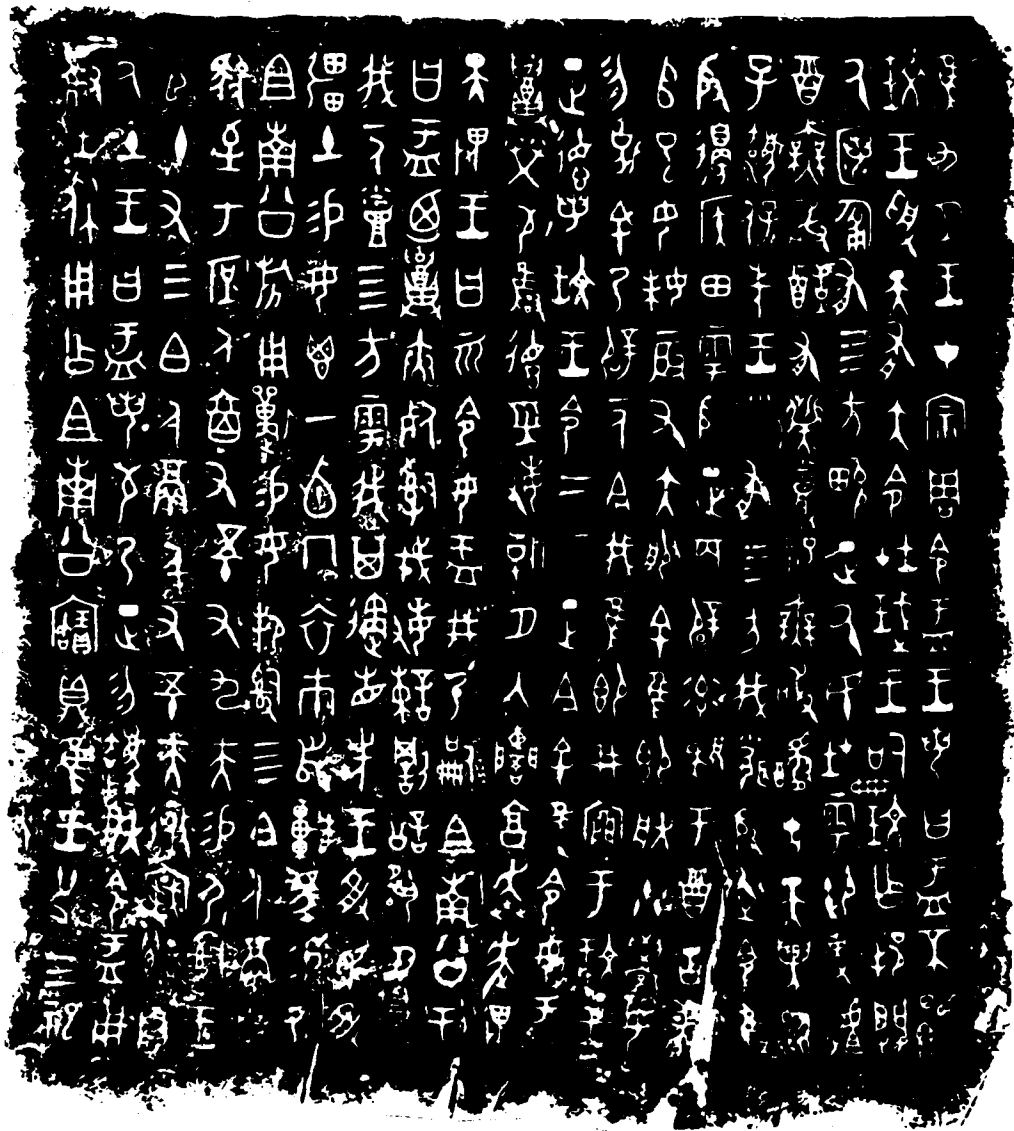 隹九月王才宗周令盂王若曰盂不顯
玟王受天有大令在珷王嗣玟乍邦闢
氒匿匍有四方畯正氒民在雩御事𠭯
酉無敢酖有髭烝祀無敢𨢩古天異臨
子灋保先王有四方我聞殷述令隹
殷邊侯田雩殷正百辟率肄于酉古喪
師已女妹辰又大服余隹即朕小學女
勿余乃辟一人今我隹即井于玟王
正德若玟王令二三正今余隹令女盂
召榮敬雍德巠敏朝夕入讕享奔走畏
天畏王曰令女盂井乃嗣且南公王
曰盂廼召夾死𤔲戎敏諫罰訟夙夕召
我一人烝四方雩我其遹省先王受民受
疆土易女鬯一卣冂衣巿舄車馬易乃
且南公旂用狩易女邦𤔲四白人鬲自
馭至于庶人六百又五十又九夫易尸𤔲王
臣十又三白人鬲千又五十夫自
氒土王曰盂若敬乃正勿灋朕令盂用
對王休用乍且南公寶鼎隹王廿又三祀